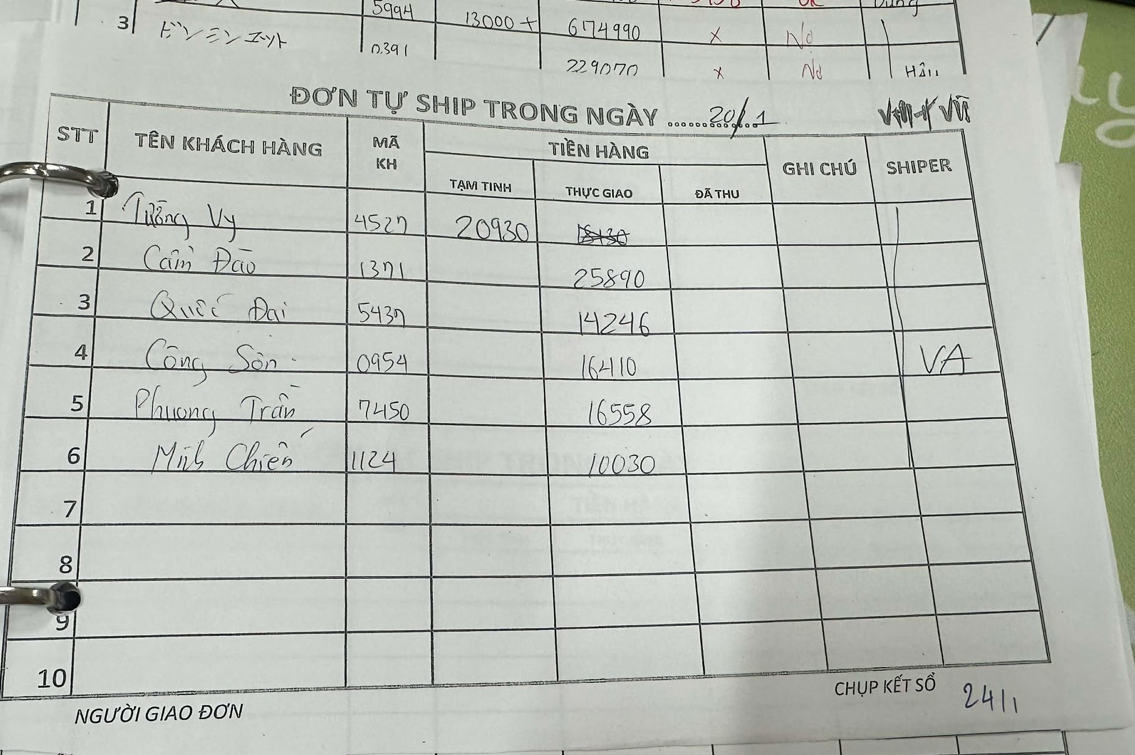 5994 13000+ 674990 x OK Dũng
3 ビンミンエット 0391 229070 x Nợ Hậu
Nợ
ĐƠN TỰ SHIP TRONG NGÀY ........20/1
STT TÊN KHÁCH HÀNG MÃ KH TIỀN HÀNG GHI CHÚ SHIPER
TẠM TINH THỰC GIAO ĐÃ THU
1 Tường Vy 4527 20930
2 Cẩm Đào 1371 25890
3 Quốc Đại 5437 14246
4 Công Sơn 0954 16410 VA
5 Phương Trần 7450 16558
6 Minh Chiến 1124 10030
7
8
9
10
NGƯỜI GIAO ĐƠN CHỤP KẾT SỔ 24/1